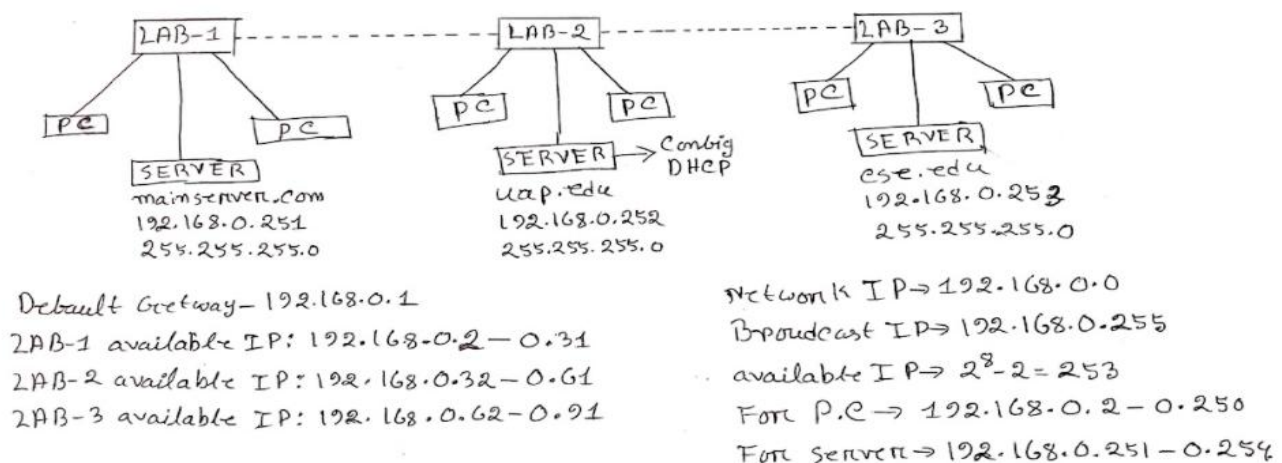 LAB-1
LAB-2
LAB-3
PC
PC
PC
PC
PC
PC
SERVER
mainserver.com
192.168.0.251
255.255.255.0
SERVER → Config
DHCP
uap.edu
192.168.0.252
255.255.255.0
SERVER
cse.edu
192.168.0.253
255.255.255.0
Default Gretway- 192.168.0.1
LAB-1 available IP: 192.168.0.2 - 0.31
LAB-2 available IP: 192.168.0.32 - 0.61
LAB-3 available IP: 192.168.0.62 - 0.91
Network IP → 192.168.0.0
Broudcast IP → 192.168.0.255
available IP → 2⁸-2 = 253
For P.C → 192.168.0.2 - 0.250
For server → 192.168.0.251 - 0.254